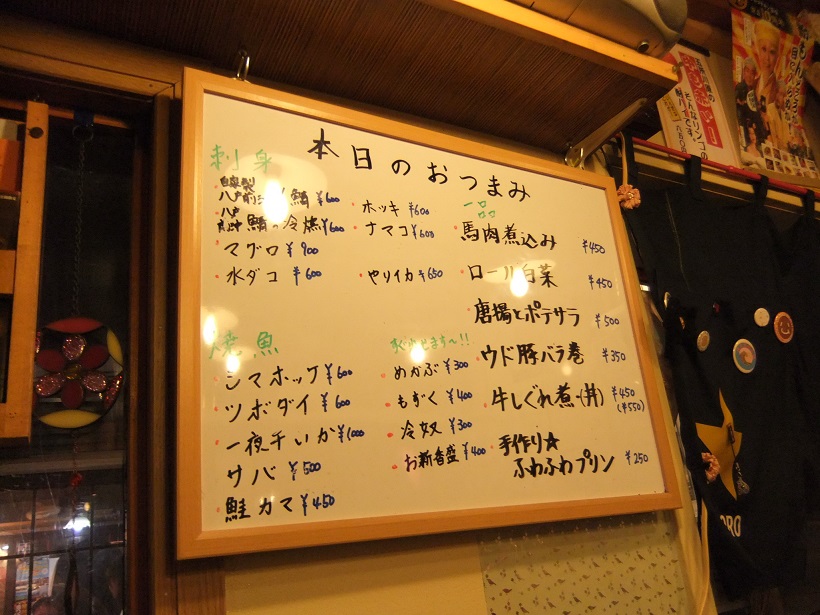 本日のおつまみ
刺身
自家製
八戸前 鯖 ¥600
八戸
鯖の冷燻 ¥600
マグロ ¥900
水ダコ ¥600
ホッキ ¥600
ナマコ ¥600
やりイカ ¥650
焼魚
シマホッケ ¥600
ツボダイ ¥600
一夜干いか ¥1000
サバ ¥500
鮭カマ ¥450
すぐ出ます〜!!
めかぶ ¥300
もずく ¥400
冷奴 ¥300
お新香盛 ¥400
一品
馬肉煮込み ¥450
ロール白菜 ¥450
唐揚とポテサラ ¥500
ウド豚バラ巻 ¥350
牛しぐれ煮・(丼) ¥450
(¥550)
手作り☆
ふわふわプリン ¥250